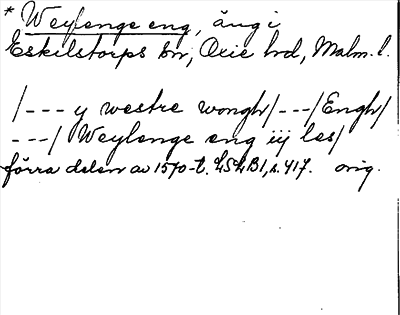 * Weylenge eng, äng i
Eskilstorps sn, Oxie hd, Malm. l.
/--- y westre wongh/---/Engh/
---/ Weylenge eng iij les/
förra delen av 1570-t. LSLB1, s. 417. orig.